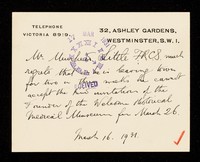 TELEPHONE
VICTORIA 8919.
32, ASHLEY GARDENS,
WESTMINSTER, S.W.1.
Mr. Muirhead Little FRCS much
regrets that he is leaving town
for two or three weeks & cannot
accept the invitation of the
Founder of the Wellcome Historical
Medical Museum for March 26.
March 16. 1931.